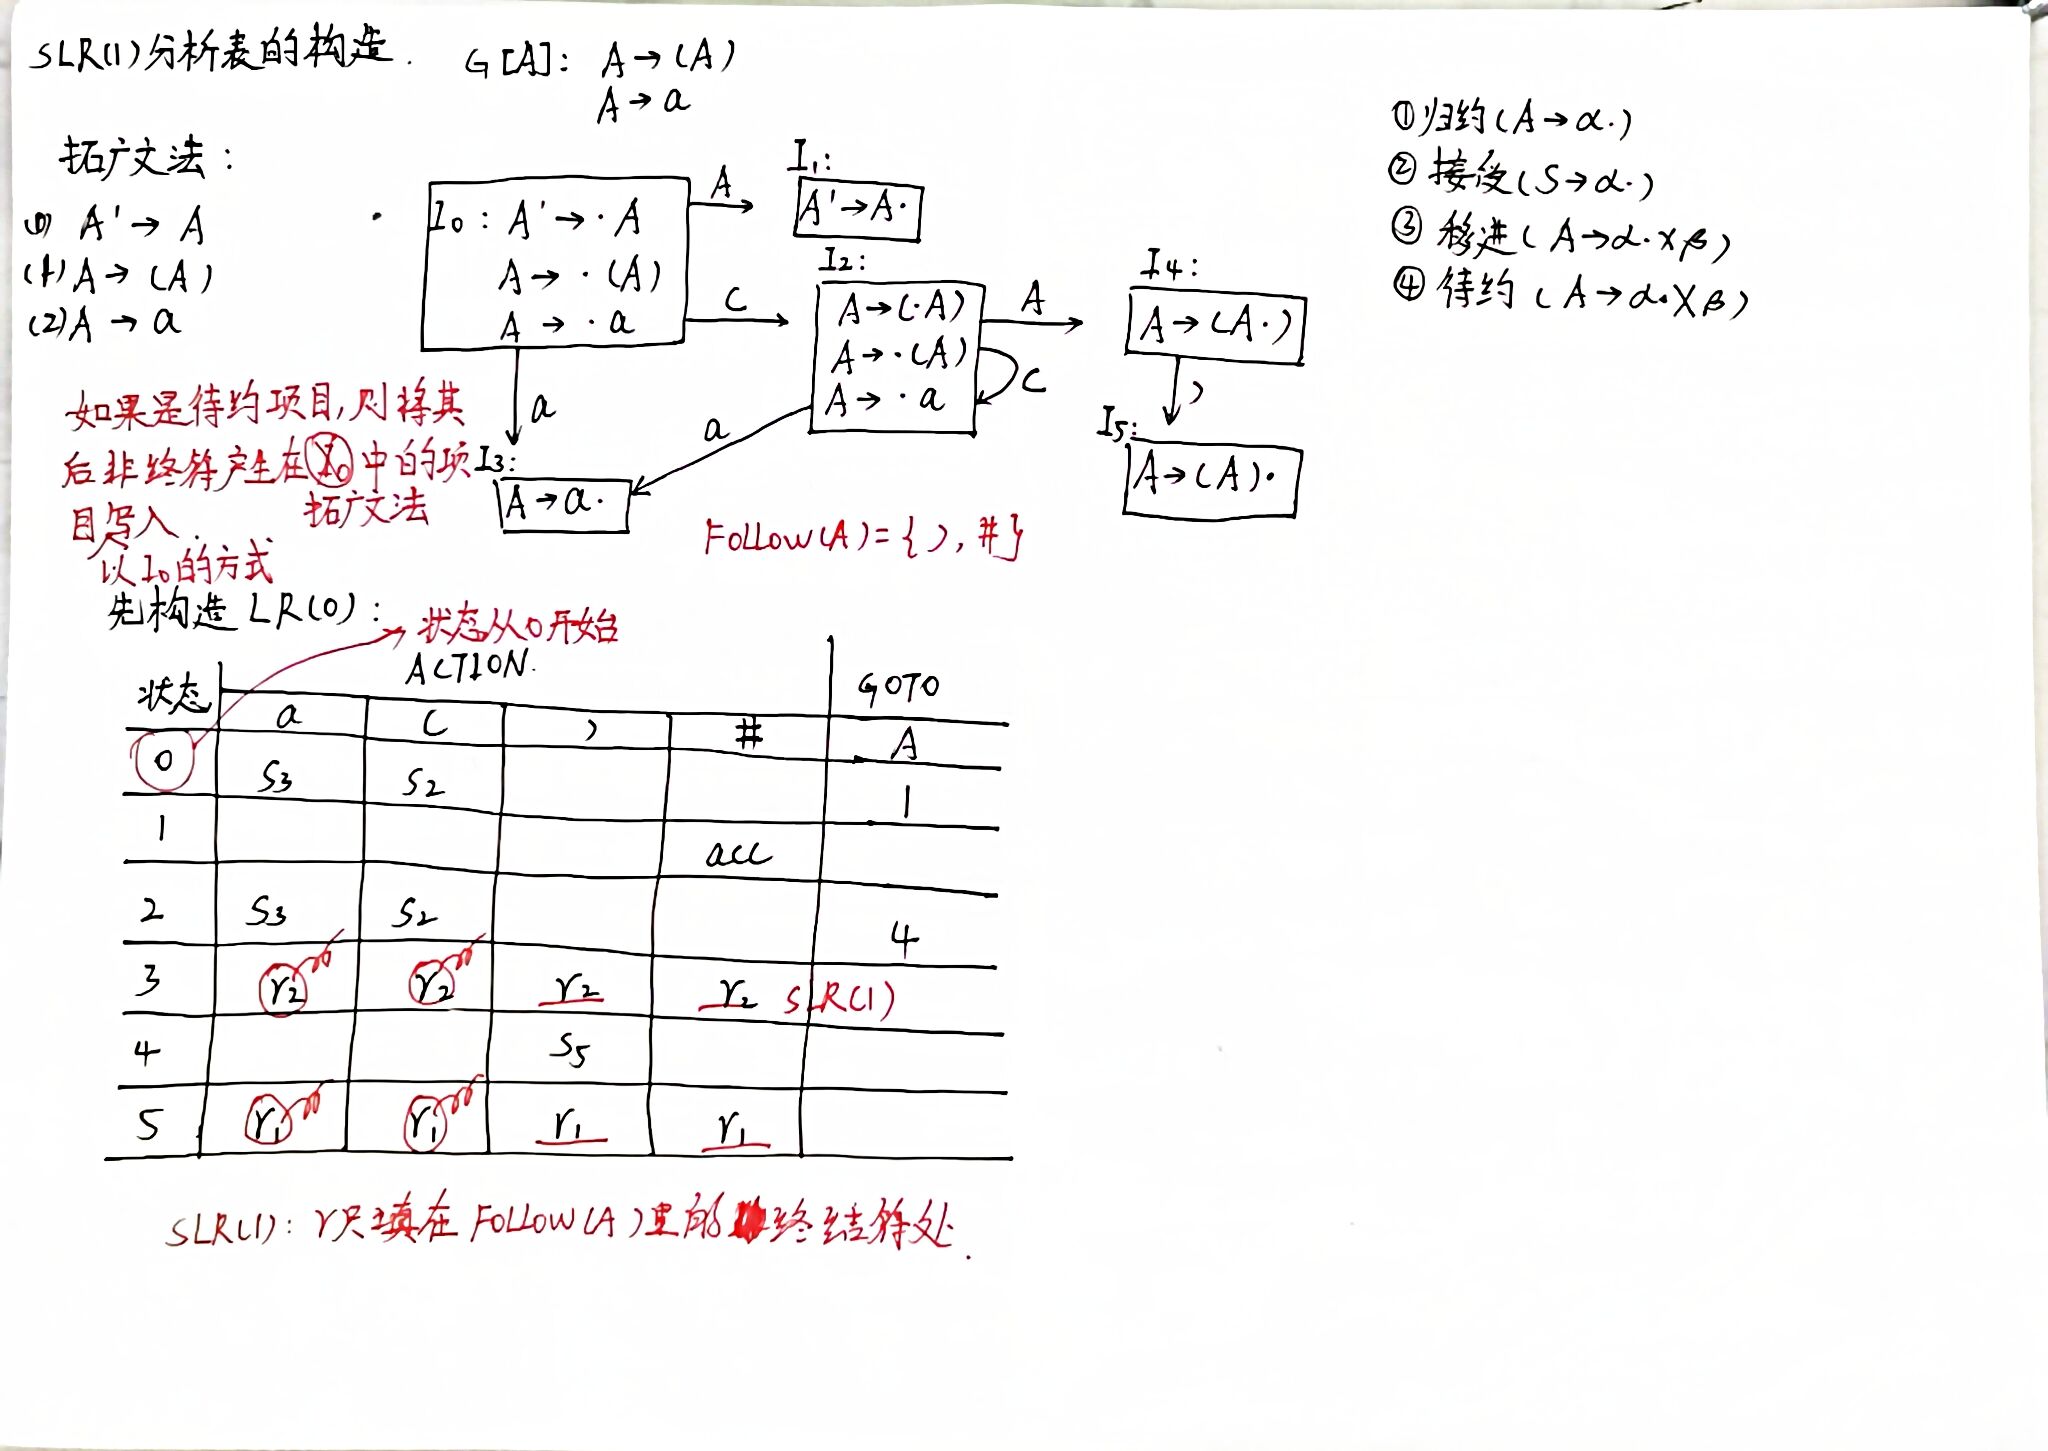 SLR(1)分析表的构造. G[A]: A→(A)
A→a
拓广文法:
(0) A'→A
(1) A→(A)
(2) A→a
I0: A'→·A
A→·(A)
A→·a
A
I1:
A'→A·
(
I2:
A→(·A)
A→·(A)
A→·a
A
(
I4:
A→(A·)
)
I5:
A→(A)·
a
a
I3:
A→a·
①归约(A→α·)
②接受(S→α·)
③移进(A→α·xβ)
④待约(A→α·Xβ)
如果是待约项目,则将其
后非终符产生在I0中的项
拓广文法
目写入.
以I0的方式
Follow(A)={ ), #}
先构造LR(0):
状态从0开始
状态 ACTION. GOTO
a ( ) # A
0 S3 S2 1
1 acc
2 S3 S2 4
3 r2 r2 r2 r2 SLR(1)
4 S5
5 r1 r1 r1 r1
SLR(1): r只填在Follow(A)里的终结符处.